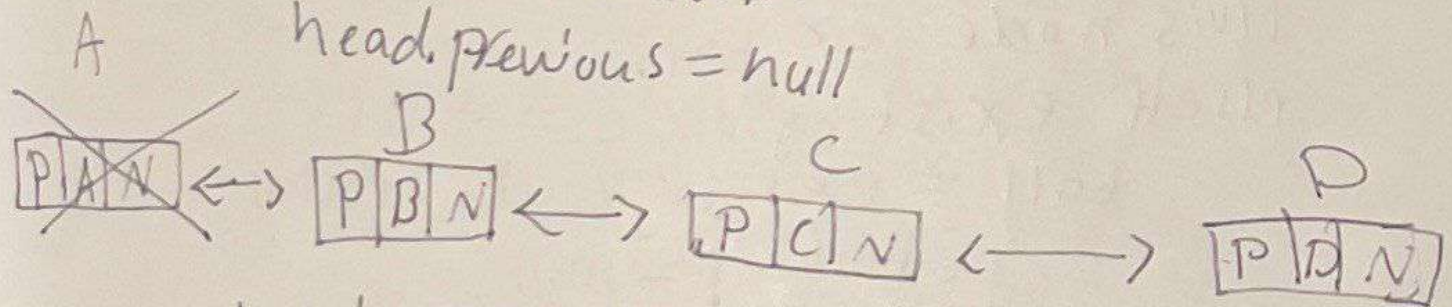 A
head.previous = null
B
C
D
P A N
P B N
P C N
P D N